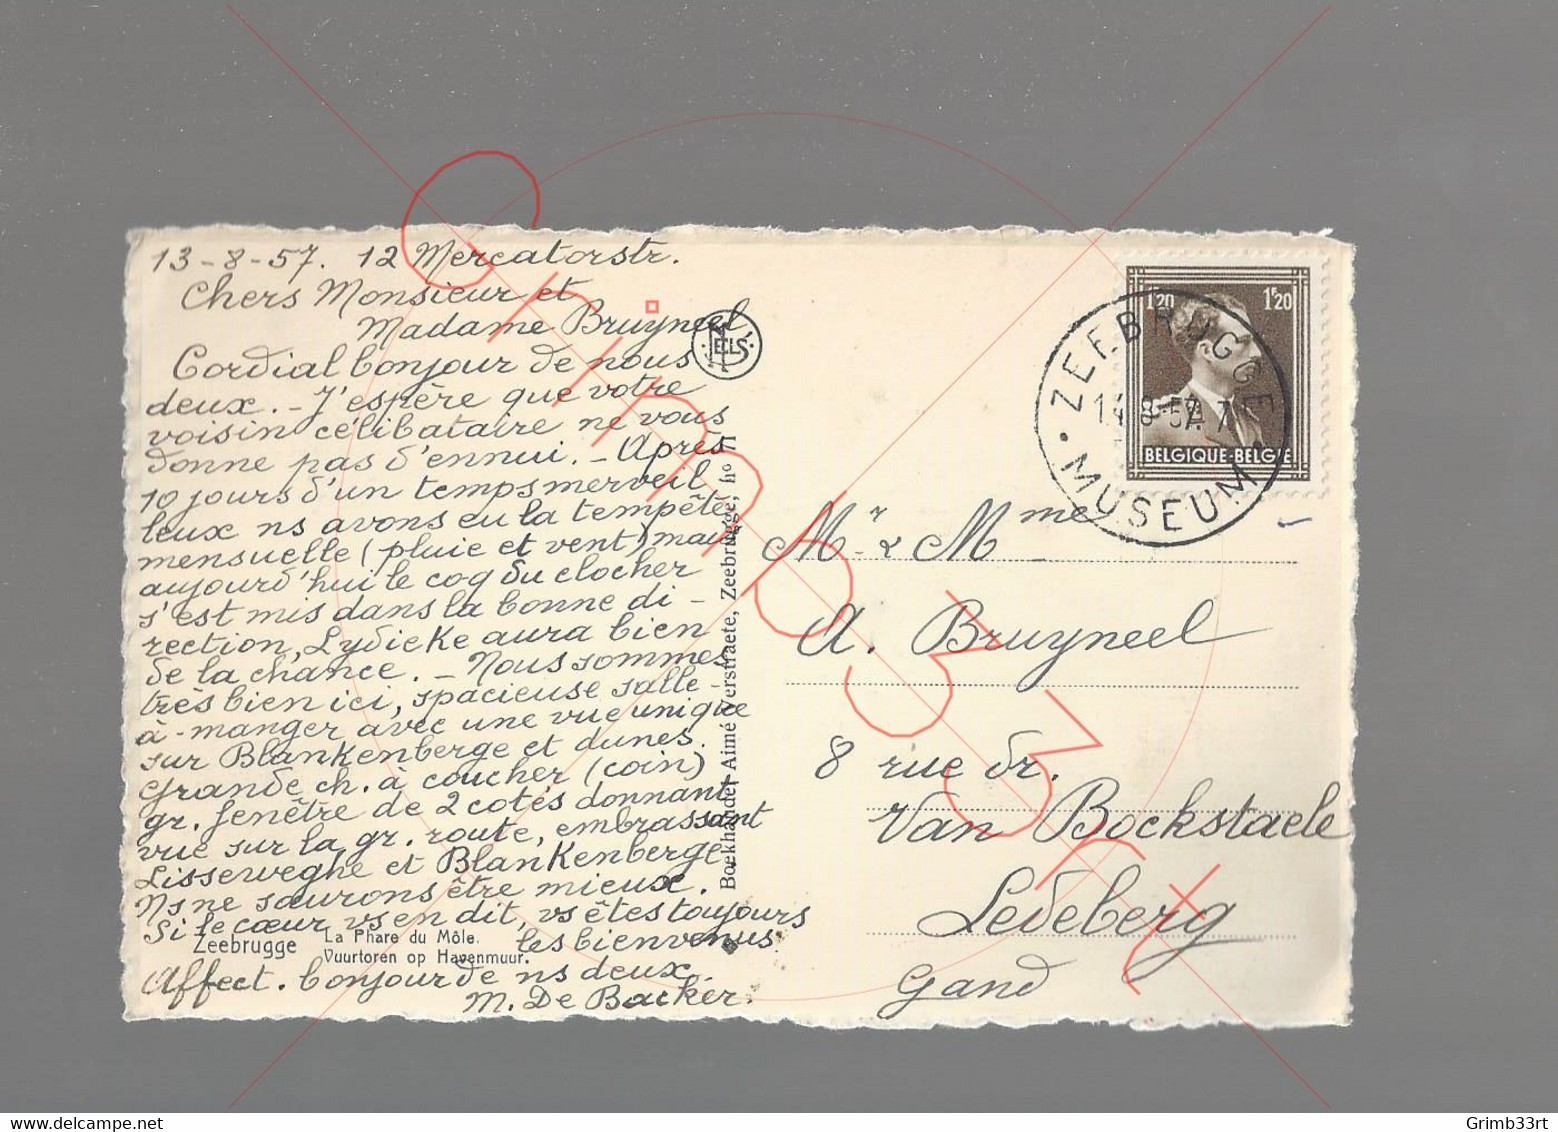 13-8-57. 12 Mercatorstr.
Chers Monsieur et
Madame Bruyneel,
Cordial bonjour de nous
deux. - J'espère que votre
voisin célibataire ne vous
donne pas d'ennui. - Après
10 jours d'un temps merveil
leux ns avons eu la tempête
mensuelle (pluie et vent) mais
aujourd'hui le coq du clocher
s'est mis dans la bonne di-
rection, Lydieke aura bien
de la chance. - Nous sommes
très bien ici, spacieuse salle-
à-manger avec une vue unique
sur Blankenberge et dunes.
Grande ch. à coucher (coin)
gr. fenêtre de 2 cotés donnant
vue sur la gr. route, embrassant
Lisseweghe et Blankenberge.
Ns ne saurons être mieux.
Si le cœur vs en dit, vs êtes toujours
les bienvenus.
Zeebrugge La Phare du Môle.
Vuurtoren op Havenmuur.
Affect. bonjour de ns deux.
M. De Backer.
NELS
Boekhandel Aimé Verstraete, Zeebrugge, nº 71
1F20 1F20
BELGIQUE-BELGIE
ZEEBRUGGE
14-8-57. 7
MUSEUM
Mr & Mme
A. Bruyneel
8 rue dr.
Van Bockstaele
Ledeberg
Gand
Grimb33rt
Delcampe.net
Grimb33rt